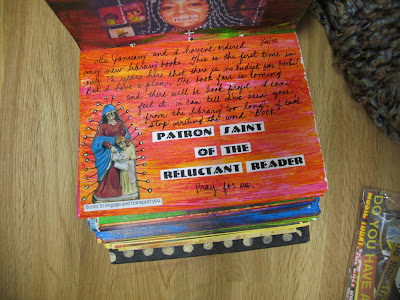 Books
1/2/00
It's January and I haven't ordered
any new library books. This is the first time in
my 12 years here that there is no budget for books!
But I have a plan. The book fair is coming
up and there will be book profit. I can
feel it. I can tell I've been gone
from the library too long. I can't
stop writing the word "Book."
PATRON SAINT
OF THE
RELUCTANT READER
Pray for us.
Books to engage and transport you.
DO YOU HAVE